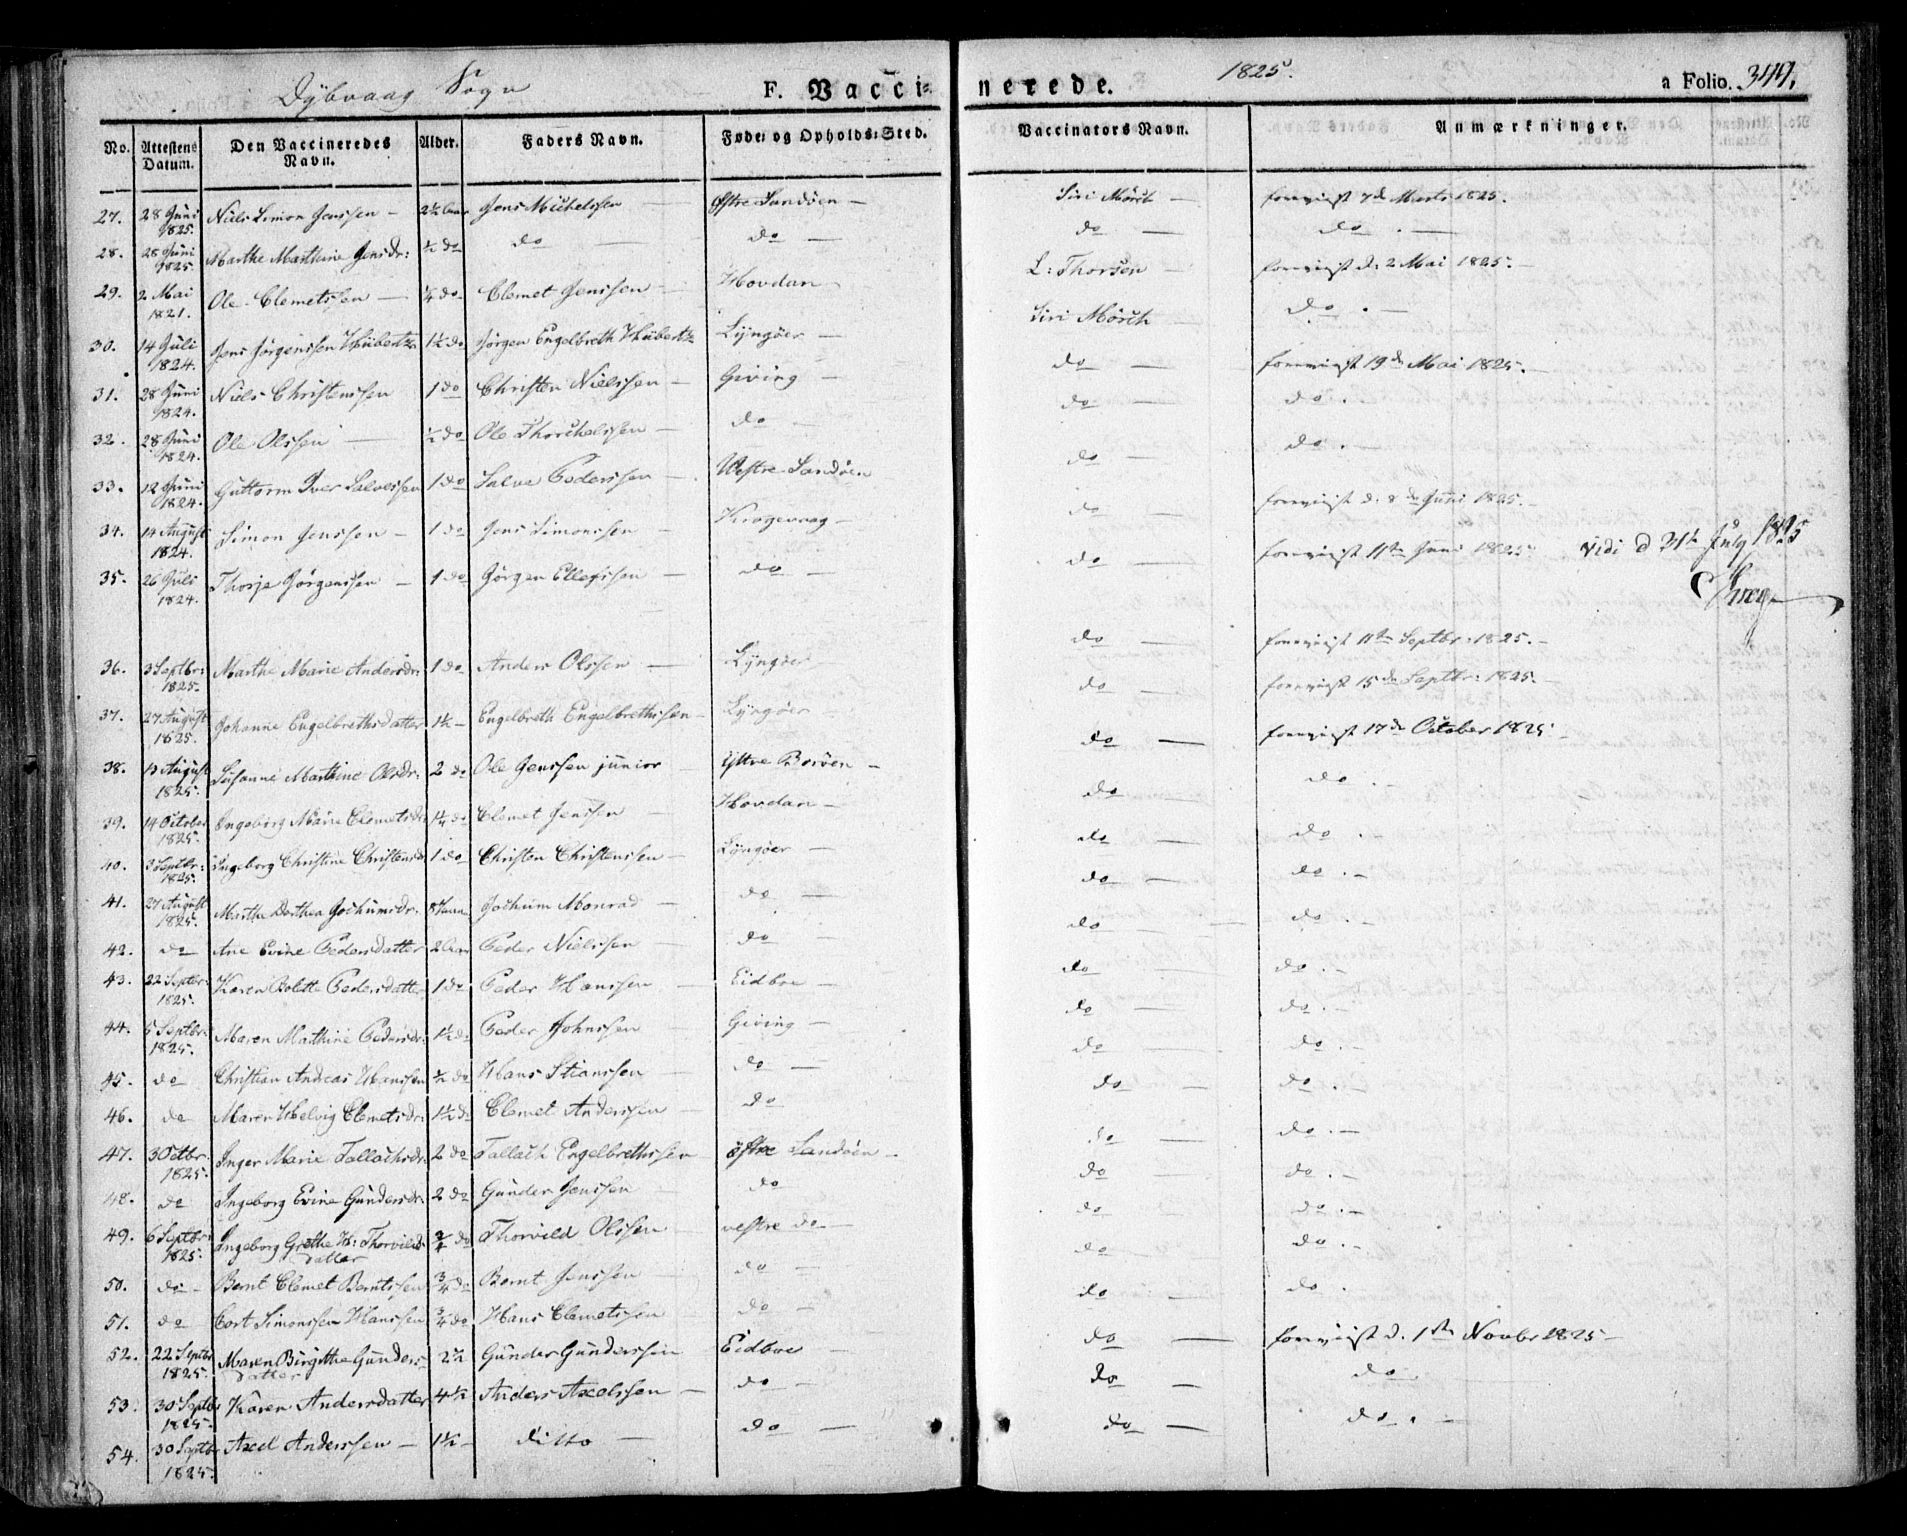 Dybvaag Sogn F. Vacci= nerede. 1825. a Folio. 349.
No. Attestens Datum. Den Vaccineredes Navn. Alder. Faders Navn. Føde= og Opholds=Sted. Vaccinators Navn. Anmærkninger.
27. 28 Juni 1825. Niels Simon Jenssen — 2½ Aar Jens Michelssen — Østre Sandøen — Siri Mörch — foreviist 7de Marts 1825.
28. 28 Juni 1825. Marthe Marthine Jensdr: ½ do do — do — do — do . —
29. 2 Mai 1821. Ole Clemetssen — ¼ do Clemet Jenssen — Hovdan L: Thorsen — foreviist d. 2 Mai 1825. —
30. 14 Juli 1824. Jens Jörgenssen Hübertz 1½ do Jörgen Engelbreth Hübertz Lyngöer — Siri Mörch do . —
31. 28 Juni 1824. Niels Christenssen 1 do Christen Nielssen — Giving — do — foreviist 19de Mai 1825. —
32. 28 Juni 1824. Ole Olssen — ½ do Ole Thorchelssen — do — do — do . —
33. 12 Juni 1824. Guttorm Iver Salvessen 1 do Salve Pederssen — Westre Sandöen do — do . —
34. 14 August 1824. Simon Jenssen — 1 do Jens Simonssen — Krogevaag — do — foreviist d. 8de Juni 1825. —
35. 26 Juli 1824. Thorje Jörgenssen — 1 do Jörgen Ellefssen — do — do — foreviist 11te Juni 1825. vidi d 31te July 1825
36. 3 Septbr: 1825. Marthe Marie Andersdr: 1 do Anders Olssen — Lyngöer do — foreviist 11te Septbr: 1825. —
37. 27 August 1825. Johanne Engelbrethsdatter 1½ — Engelbreth Engelbrethssen — Lyngöer — do — foreviist 15de Septbr: 1825. —
38. 13 August 1825. Susanne Marthine Olsdr: 2 do Ole Jenssen junior — Yttre Boröen — do — foreviist 17de October 1825. —
39. 14 October 1825. Ingeborg Marie Clemetsdr: 1¼ do Clemet Jenssen — Hovdan — do do . —
40. 3 Septbr: 1825. Ingeborg Christine Christensdr 1 do Christen Christenssen — Lyngöer — do — do . —
41. 27 August 1825. Marthe Dorthea Jochumsdr: Jochum Monrad — do — do — do . —
42. do Ane Evine Pedersdatter 2 Aar Peder Nielssen — do — do — do . —
43. 22 Septbr: 1825. Karen Bolette Pedersdatter 1 do Peder Hanssen — Eidboe — do — do . —
44. 5 Septbr: 1825. Maren Marthine Pedersdr: 1½ do Peder Johnssen Giving — do — do . —
45. do Christian Andreas Hanssen ½ do Hans Stianssen — do — do — do . —
46. do Maren Helvig Clemetsdr: 1½ do Clemet Anderssen — do do — do . —
47. 3 Octbr. 1825. Inger Marie Tallachsdr: 2 do Tallach Engelbrethssen — östre Sandöen — do — do . —
48. do Ingeborg Evine Gundersdr: 2 do Gunder Jenssen — do do — do . —
49. 6 Septbr: 1825. Ingeborg Grethe H: Thorvilds datter do Thorvild Olssen — vestre do — do — do . —
50. do — Bernt Clemet Berntssen ¾ do Bernt Jenssen — do — do — do . —
51. do Cort Simonssen Hanssen ¾ do Hans Clemetssen — do — do — do .
52. 22 Septbr 1825. Maren Birgithe Gunders datter 2½ Gunder Gunderssen Eidboe — do — foreviist d. 1ste Novbr 1825 —
53. 30 Septbr 1825. Karen Andersdatter 4½ Anders Axelssen — do — do — do .
54. 30 Septbr 1825. Axel Anderssen — 1½ — ditto — do — do — do . —